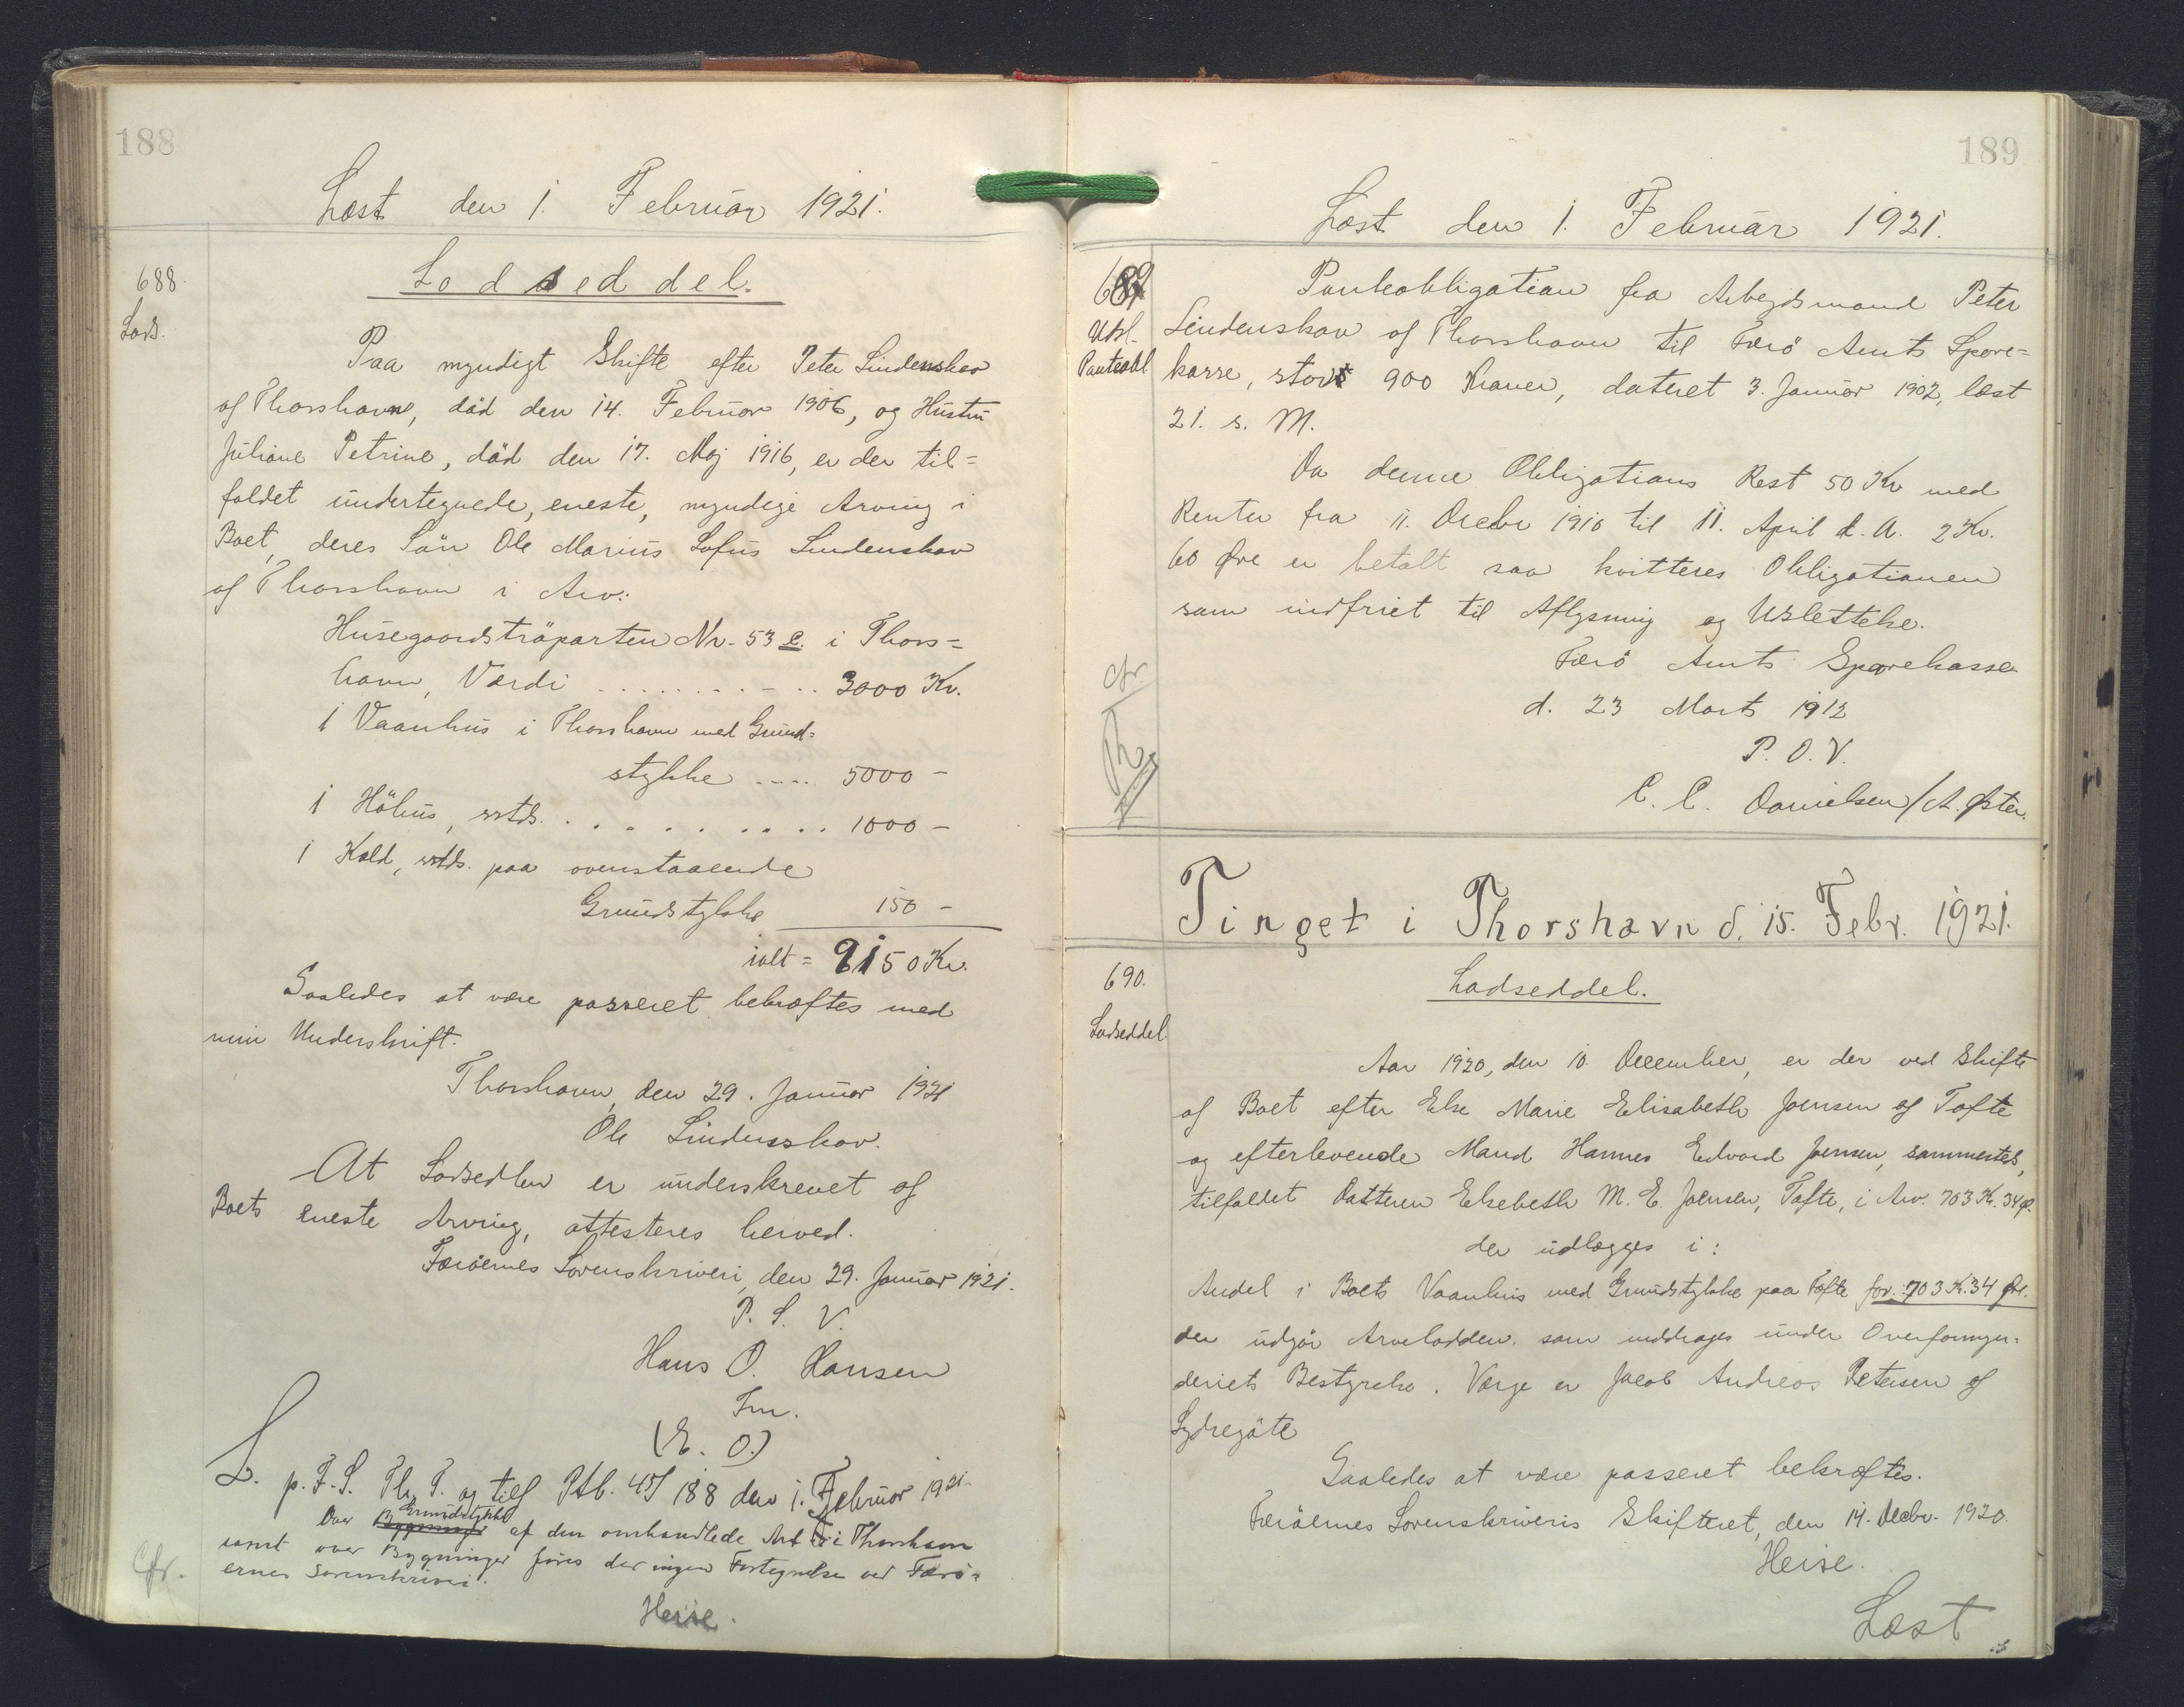 188
Læst den 1. Februar 1921.
688.
Lods.
Lodseddel.
Paa myndigt Skifte efter Peter Lindenskov
af Thorshavn, död den 14. Februar 1906, og Hustru
Juliane Petrine, död den 17. Maj 1916, er der til=
faldet undertegnede, eneste, myndige Arving i
Boet, deres Sön Ole Marius Sofus Lindenskov
af Thorshavn i Arv:
Husegaardströparten Nr. 53 e. i Thors=
havn, Værdi . . . . . . . . . . 3000 Kr.
1 Vaanhus i Thorshavn med Grund=
stykke . . . . 5000 –
1 Höhus, sstds. . . . . . . . . . . 1000 –
1 Kald, sstds. paa ovenstaaende
Grundstykke 150 –
ialt = 9150 Kr.
Saaledes at være passeret bekræftes med
min Underskrift.
Thorshavn, den 29. Januar 1921
Ole Lindenskov.
At Lodsedlen er underskrevet af
Boets eneste Arving, attesteres herved.
Færöernes Sorenskriveri, den 29. Januar 1921.
P. S. V.
Hans O. Hansen
Fm.
(E. O.)
L. p. F. S. Th. T. og tilf Ptb. 45/188 den 1. Februar 1921.
Grundstykke
Over Bygninger af den omhandlede Art i Thorshavn
samt over Bygninger føres der ingen Fortegnelse ved Færö=
ernes Sorenskriveri.
Heise.
Cfr.
189
Læst den 1. Februar 1921.
689
Udsl.
Panteobl
Panteobligation fra Arbejdsmand Peter
Lindenskov af Thorshavn til Færö Amts Spare=
kasse, stor 900 Kroner, dateret 3. Januar 1902, læst
21. s. M.
Da denne Obligations Rest 50 Kr med
Renter fra 11. Decbr 1910 til 11. April d. A. 2 Kr.
60 Øre er betalt saa kvitteres Obligationen
som indfriet til Aflysning og Udslettelse.
Færö Amts Sparekasse
d. 23 Marts 1912
P. O. V.
C. C. Danielsen / A. Øster.
cfr
Tinget i Thorshavn d. 15. Febr. 1921.
690.
Lodseddel.
Lodseddel.
Aar 1920, den 10. December, er der ved Skifte
af Boet efter Else Marie Elisabeth Joensen af Tofte
og efterlevende Mand Hannes Edvard Joensen, sammesteds,
tilfaldet Datteren Elsebeth M. E. Joensen, Tofte, i Arv. 703 Kr. 34 Ø.
der udlægges i:
Andel i Boets Vaanhus med Grundstykke paa Tofte for. 703 K. 34 Øre.
der udgör Arvelodden, som inddrages under Overformyn=
deriets Bestyrelse. Værge er Jacob Andreas Petersen af
Sydregöte
Saaledes at være passeret bekræftes.
Færöernes Sorenskriveris Skifteret, den 14. Decbr. 1920.
Heise.
Læst